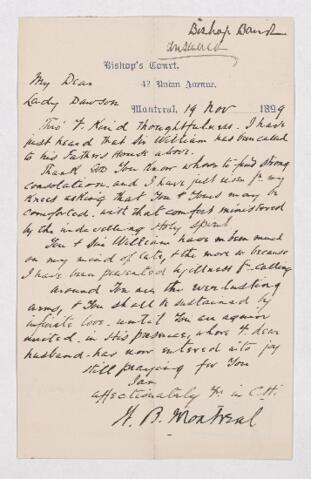 Bishop Bond
Answered
Bishop's Court.
42 Union Avenue.
Montreal, 19 Nov 1899
My Dear
Lady Dawson
Thro' Kind thoughtfulness. I have
just heard that Sir William has been called
to his Father's House above.
Thank God You Know where to find strong
consolation. and I have just risen fr my
Knees asking that You & Yours may be
comforted. with that comfort ministered
by the indwelling Holy Spirit
You & Sir William have been much
on my mind of late, & the more so because
I have been prevented by illness fr calling
around You are the everlasting
arms, & You shall be sustained by
infinite love. until You are again
united. in His presence, where Yr dear
husband. has now entered into joy
Still praying for You
I am
affectionately Yrs in C.H.
W. B. Montreal